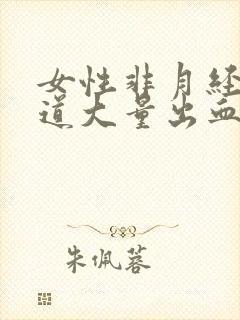 女性非月经
道大量出血
朱佩蓉